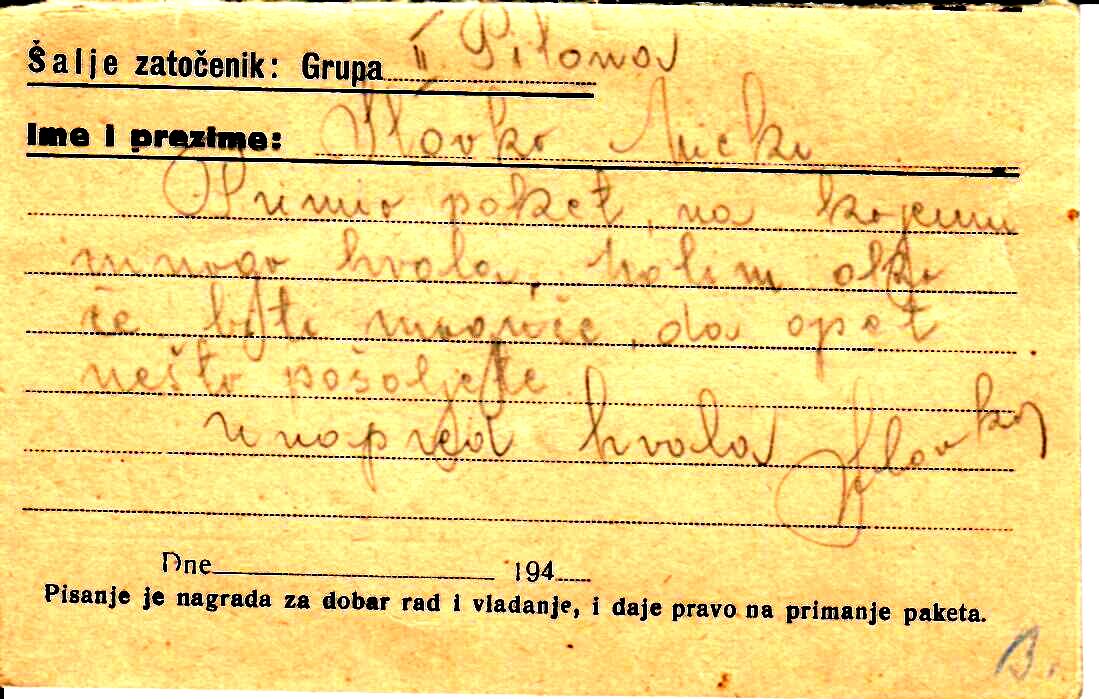 Šalje zatočenik: Grupa II Pilona
Ime i prezime: Slavko
Primio paket, na kojemu
mnogo hvala, molim ako
će biti moguće, da opet
nešto pošaljete
unapred hvala Slavko
Dne 194
Pisanje je nagrada za dobar rad i vladanje, i daje pravo na primanje paketa.
B.